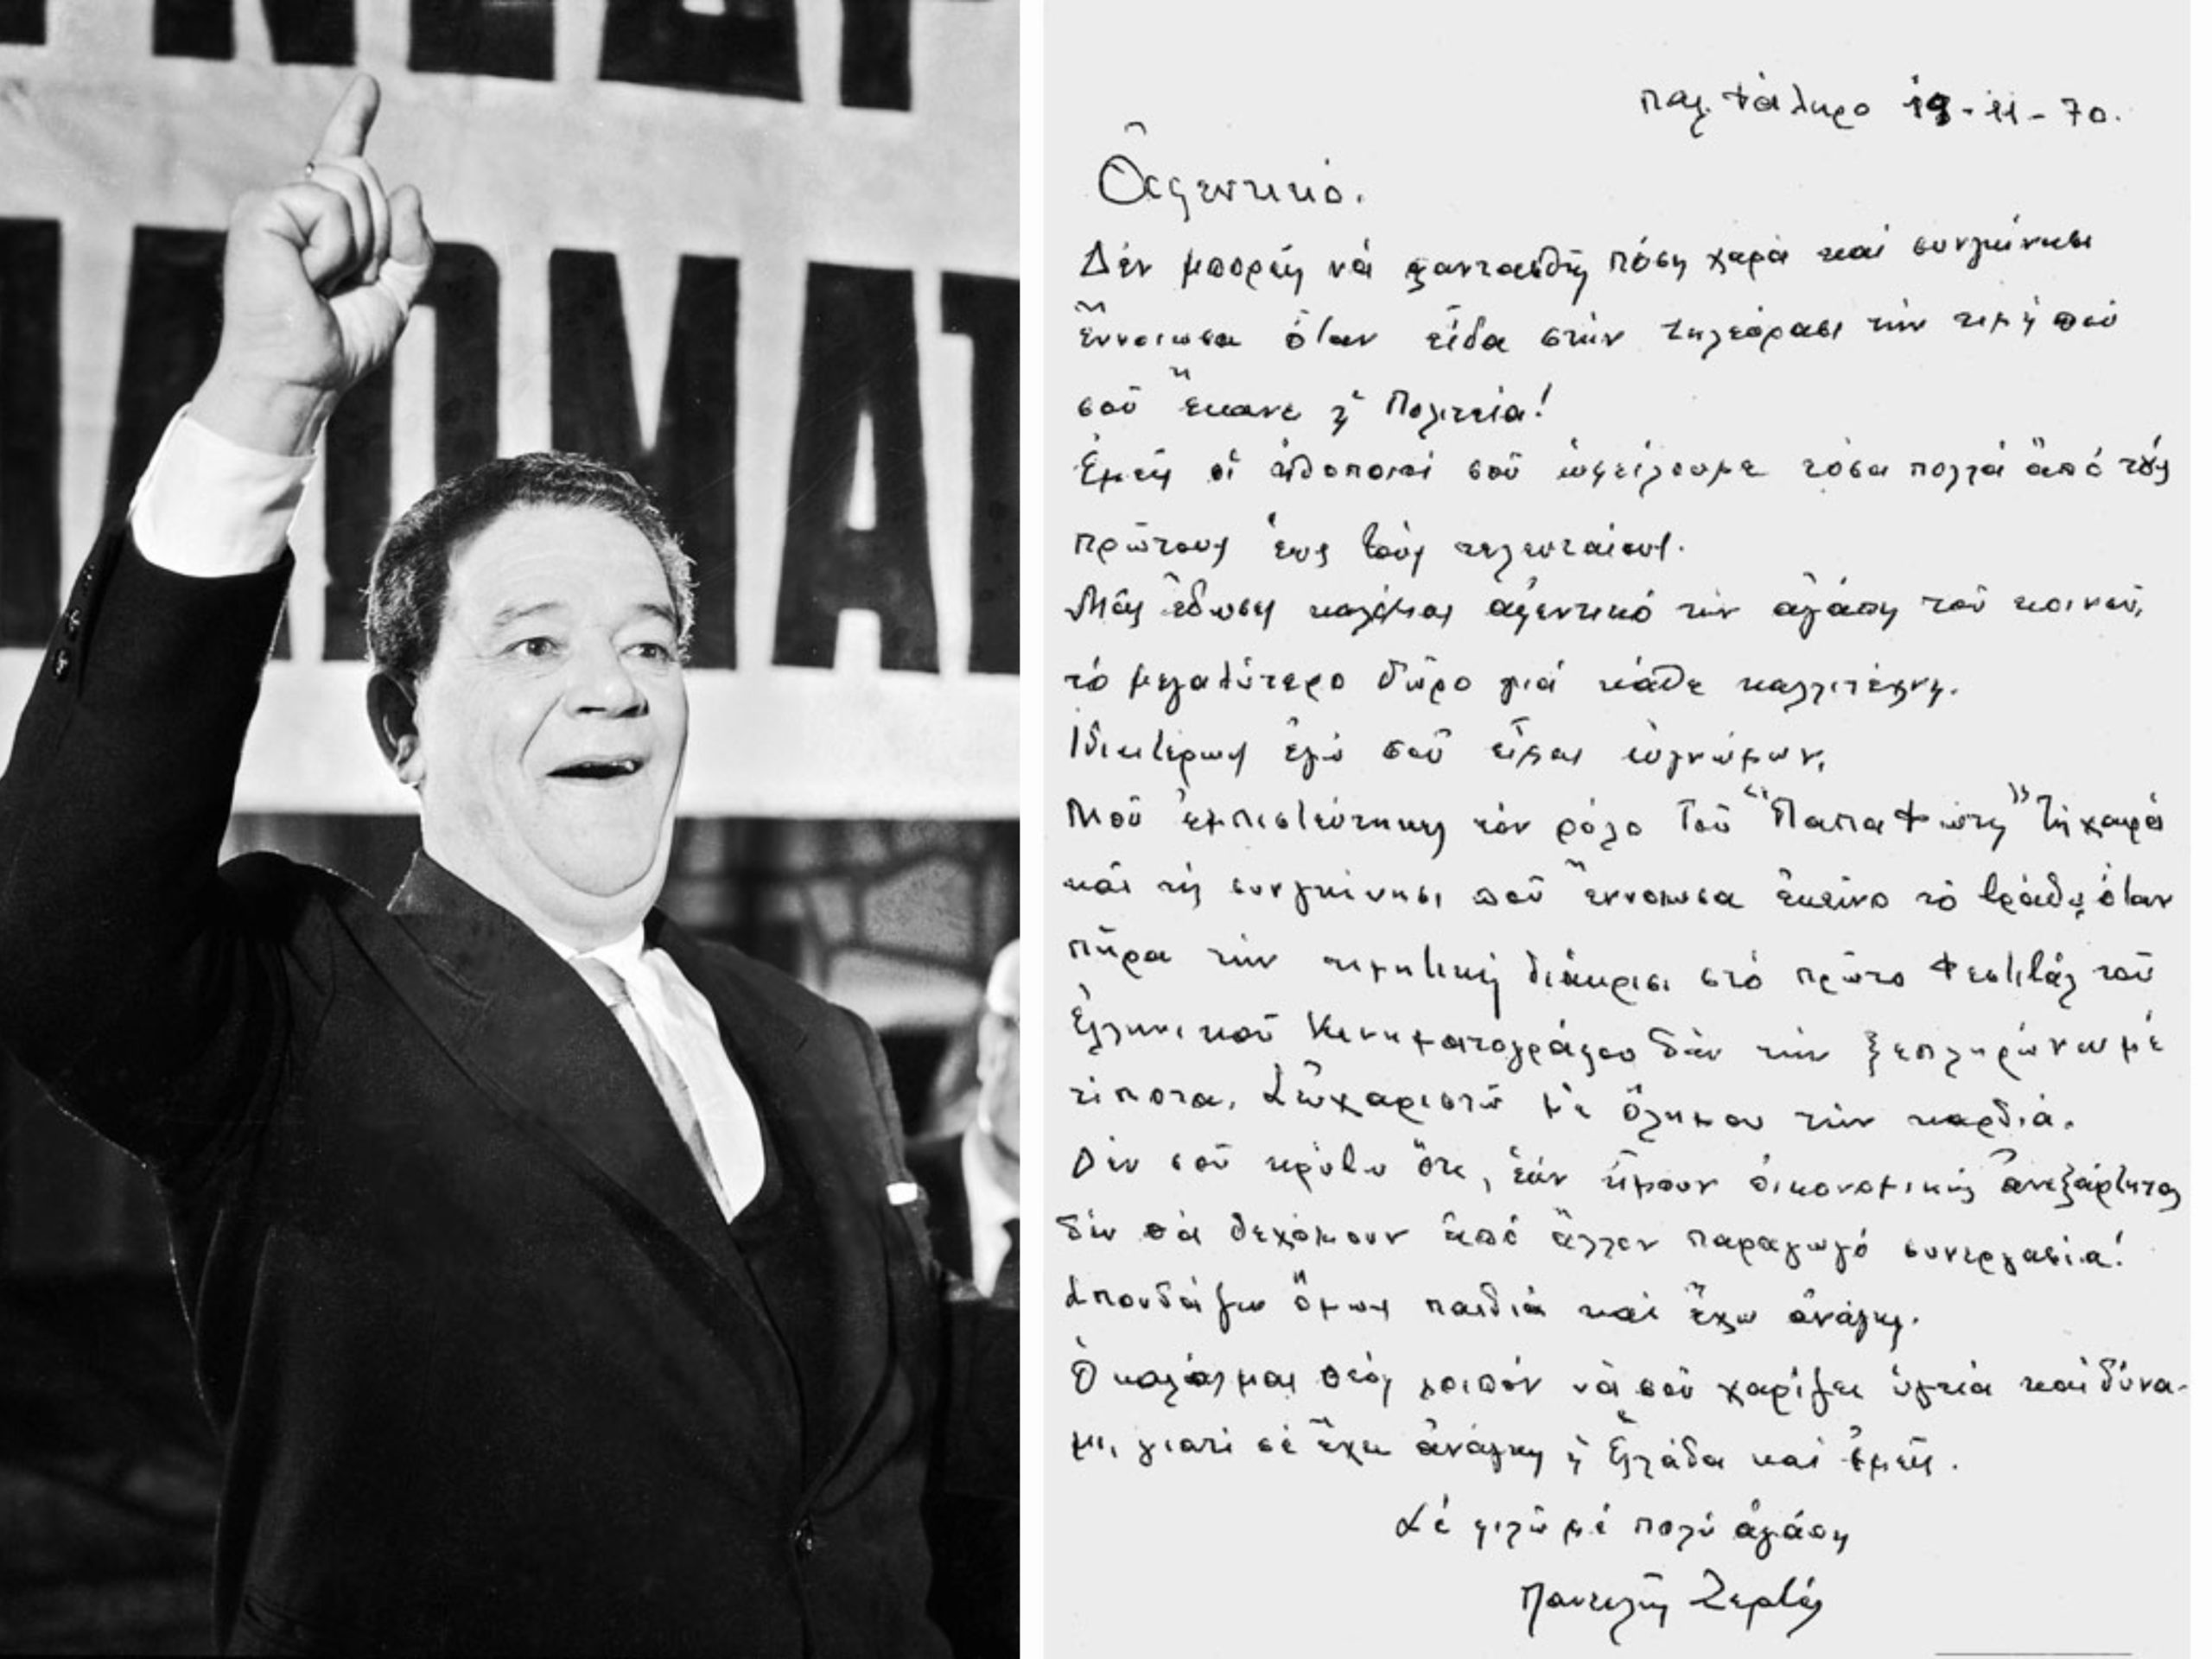 ΜΑΤ
Παλ. Φάληρο 19-11-70.
Δέν μπορεῖς νά φαντασθῆς πόση χαρά καί συγκίνησι
ἔννοιωσα ὅταν εἶδα στήν τηλεόρασι τήν τιμή πού
σοῦ ἔκανε ἡ Πολιτεία!
Ἐμεῖς οἱ ἠθοποιοί σοῦ ὠφείλουμε τόσα πολλά ἀπό τούς
πρῶτους ἕως τούς τελευταίους.
Μᾶς ἔδωσες ἀφεντικό τήν ἀγάπη τοῦ κοινοῦ,
τό μεγαλύτερο δῶρο γιά κάθε καλλιτέχνη.
Ἰδιαιτέρως ἐγώ σοῦ εἶμαι εὐγνώμων,
Μοῦ ἐμπιστεύτηκες τόν ρόλο τοῦ "Παπα Φώτη" Τή χαρά
καί τή συγκίνησι πού ἔννοιωσα ἐκεῖνο τό βράδυ, ὅταν
πῆρα τήν τιμητική διάκρισι στό πρῶτο Φεστιβάλ τοῦ
Ἑλληνικοῦ Κινηματογράφου δέν τήν ξεπληρώνω μέ
τίποτα. Σ'εὐχαριστῶ μέ ὅλη μου τήν καρδιά.
Δέν σοῦ κρύβω ὅτι, ἐάν ἤμουν οἰκονομικῶς ἀνεξάρτητος
δέν θά δεχόμουν ἀπό ἄλλον παραγωγό συνεργασία!
Σπουδάζω ὅμως παιδιά καί ἔχω ἀνάγκη.
Ὁ Θεός λοιπόν νά σοῦ χαρίζει ὑγεία καί δύνα-
μι, γιατί σέ ἔχει ἀνάγκη ἡ Ἑλλάδα καί ἐμεῖς.
Σέ φιλῶ μέ πολύ ἀγάπη
Παντελῆς Ζερβός